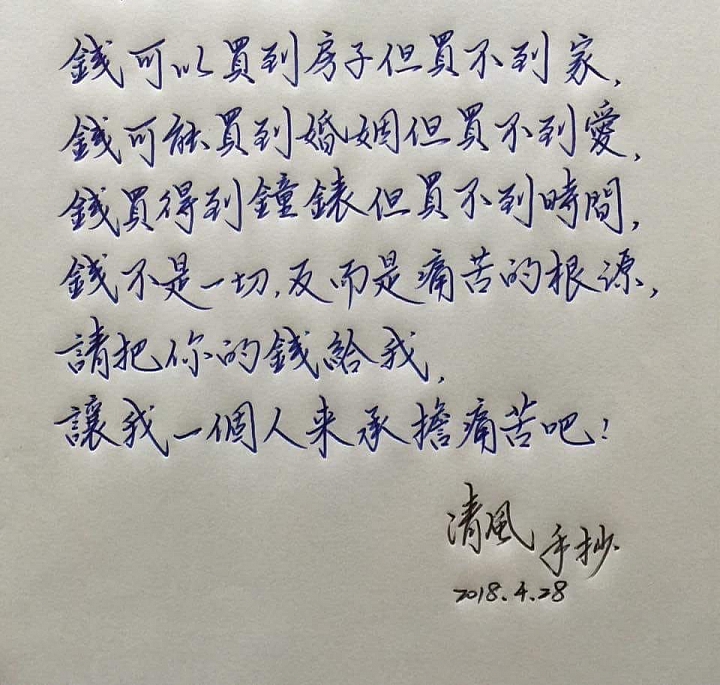 錢可以買到房子但買不到家,
錢可能買到婚姻但買不到愛,
錢買得到鐘錶但買不到時間,
錢不是一切,反而是痛苦的根源,
請把你的錢給我,
讓我一個人来承擔痛苦吧!
清風手抄
2018.4.28